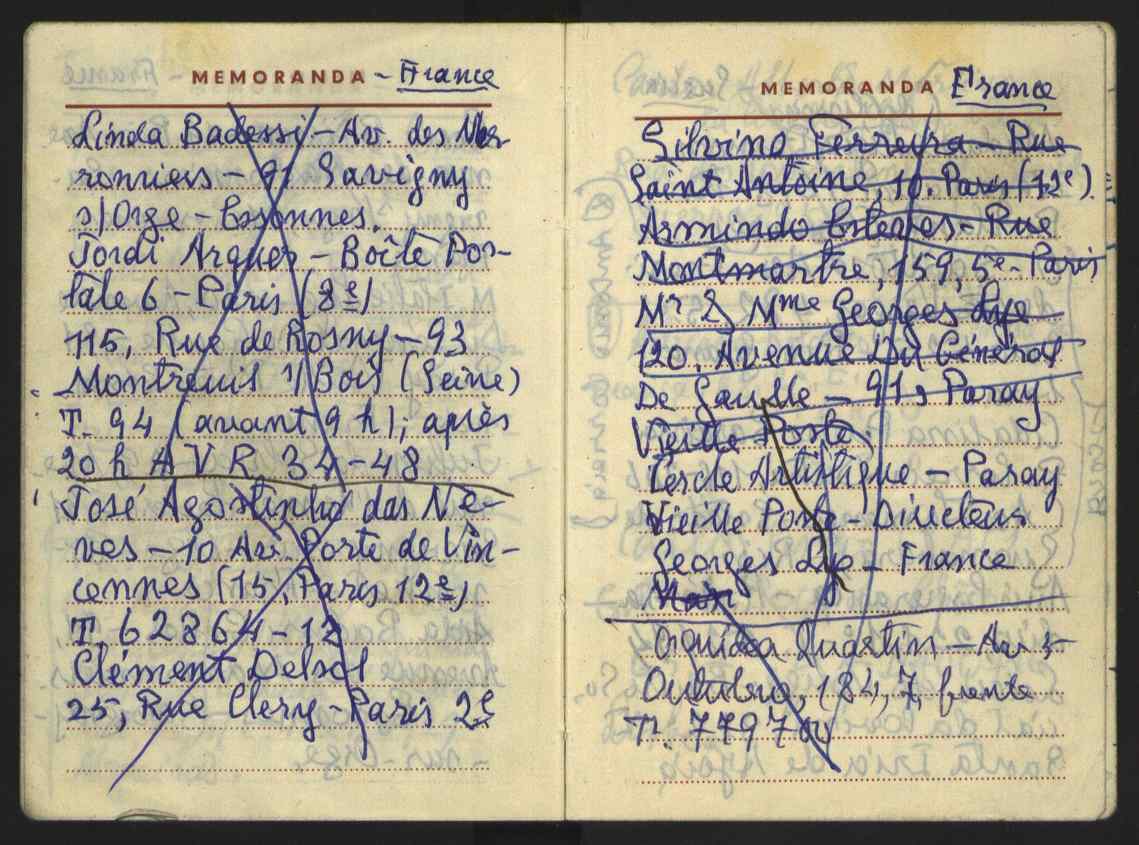 MEMORANDA - France
Linda Badessi - Av. des Mar
ronniers - 91 Savigny
s/Orge - Essonnes.
Jordi Arquer - Boîte Pos-
tale 6 - Paris (8e)
115, Rue de Rosny - 93
Montreuil s/Bois (Seine)
T. 94 (avant 9 h); après
20 h A V R 34-48
José Agostinho das Ne-
ves - 10 Av. Porte de Vin-
cennes (15, Paris 12e)
T. 62864-12
Clément Delsol
25, Rue Clery - Paris 2e
MEMORANDA France
Silvino Ferreira - Rue
Saint Antoine, 10. Paris (12e).
Armindo Esteves - Rue
Montmartre, 159, 5e - Paris
Mr & Mme Georges Lye
120, Avenue Du Général
De Gaulle - 91, Paray
Vieille Poste
Cercle Artistique - Paray
Vieille Poste - Directeur
Georges Lye - France
Orquidea Quartin - Av. 5
Outubro, 184, 7, frente
T. 7797